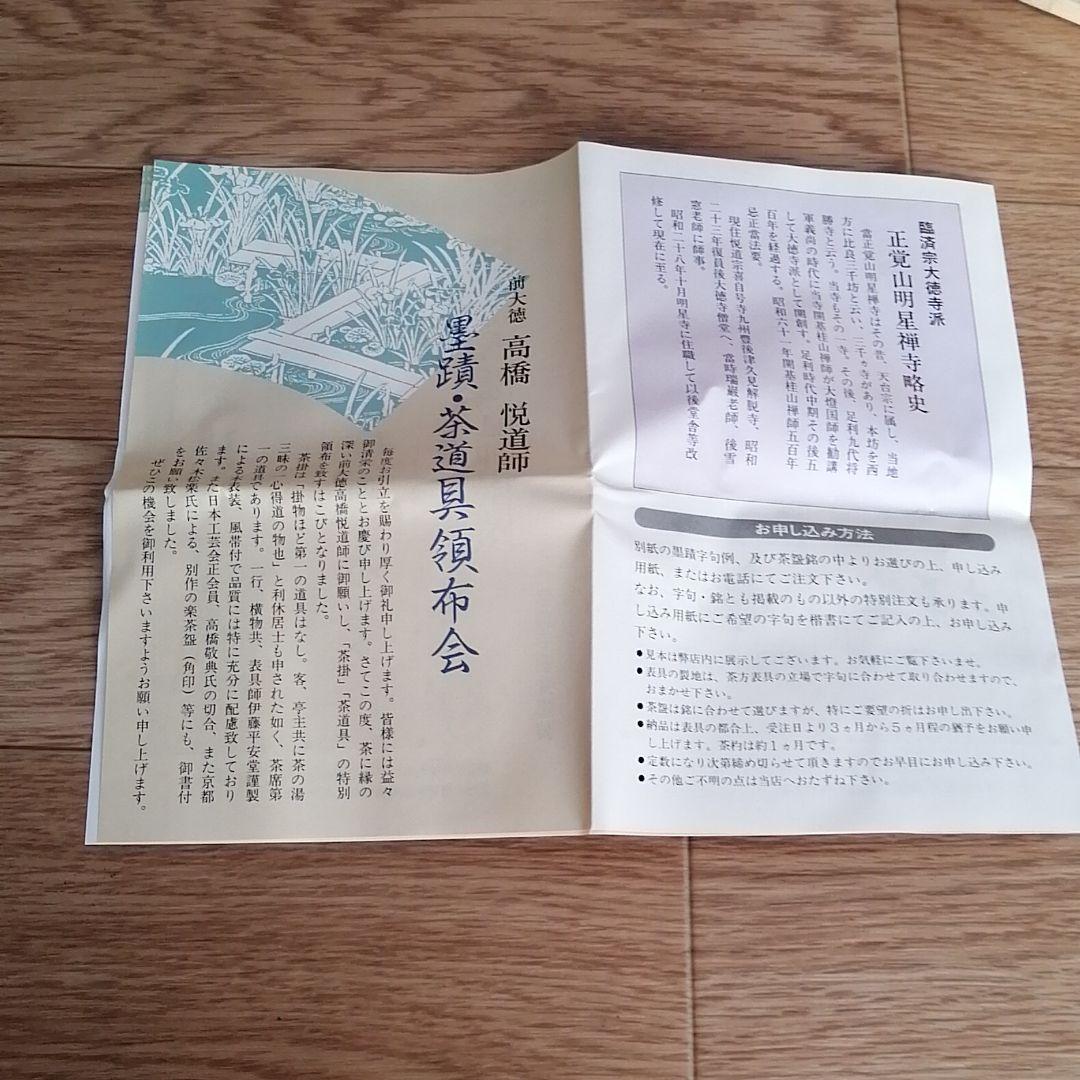 臨済宗大徳寺派
正覚山明星禅寺略史
當正覚山明星禅寺はその昔、天台宗に属し、当地
方に比良三千坊と云い、三千ヵ寺があり、本坊を西
勝寺と云う。当寺もその一寺。その後、足利九代将
軍義尚の時代に当寺開基桂山禅師が大燈国師を勧講
して大徳寺派として開創す。足利時代中期その後五
百年を経過する。昭和六十一年開基桂山禅師五百年
忌正當法要。
現住悦道宗喜自号寺九州豊後津久見解脱寺、昭和
二十三年復員後大徳寺僧堂へ、當時瑞巌老師、後雪
窓老師に師事。
昭和二十八年十月明星寺に住職して以後堂舎等改
修して現在に至る。
お申し込み方法
別紙の墨蹟字句例、及び茶盌銘の中よりお選びの上、申し込み
用紙、またはお電話にてご注文下さい。
なお、字句・銘とも掲載のもの以外の特別注文も承ります。申
し込み用紙にご希望の字句を楷書にてご記入の上、お申し込み
下さい。
●見本は弊店内に展示してございます。お気軽にご覧下さいませ。
●表具の裂地は、茶方表具の立場で字句に合わせて取り合わせますので、
おまかせ下さい。
●茶盌は銘に合わせて選びますが、特にご要望の折はお申し出下さい。
●納品は表具の都合上、受注日より3ヵ月から5ヵ月程の猶予をお願い申
し上げます。茶杓は約1ヵ月です。
●定数になり次第締め切らせて頂きますのでお早目にお申し込み下さい。
●その他ご不明の点は当店へおたずね下さい。
前大徳 高橋 悦道師
墨蹟・茶道具領布会
毎度お引立を賜わり厚く御礼申し上げます。皆様には益々
御清栄のこととお慶び申し上げます。さてこの度、茶に縁の
深い前大徳高橋悦道師に御願いし、「茶掛」「茶道具」の特別
領布を致すはこびとなりました。
茶掛は「掛物ほど第一の道具はなし。客、亭主共に茶の湯
三昧の心得道の物也」と利休居士も申された如く、茶席第
一の道具であります。一行、横物共、表具師伊藤平安堂謹製
による表装、風帯付で品質には特に充分に配慮致しており
ます。また日本工芸会正会員、高橋敬典氏の切合、また京都
佐々木松楽氏による、別作の楽茶盌(角印)等にも、御書付
をお願い致しました。
ぜひこの機会を御利用下さいますようお願い申し上げます。